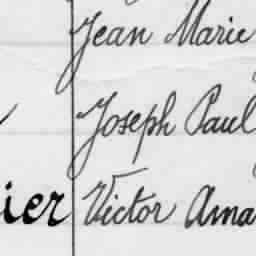 Jean Marie
Joseph Paul
ier Victor Ama